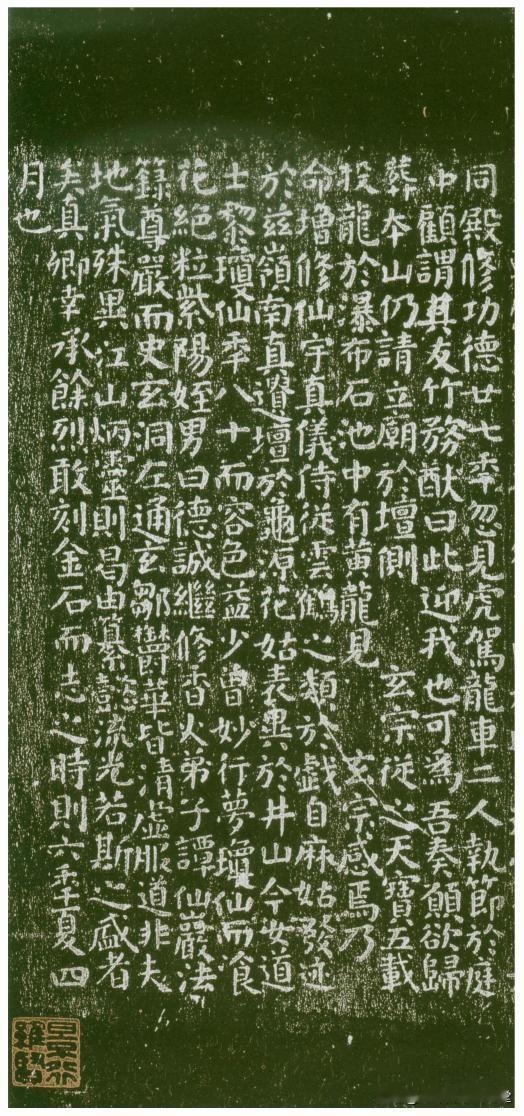 同殿修功德廿七年忽見虎駕龍車二人執節於庭
中顧謂其友竹務猷曰此迎我也可為吾奏願欲歸
葬本山仍請立廟於壇側 玄宗從之天寶五載
投龍於瀑布石池中有黃龍見 玄宗感焉乃
命增修仙宇真儀侍從雲鶴之類於戲自麻姑發迹
於茲嶺南真遺壇於龜原花姑表異於井山今女道
士黎瓊仙年八十而容色益少曾妙行夢瓊仙而飡
花絕粒紫陽姪男曰德誠繼修香火弟子譚仙巖法
籙尊嚴而史玄洞左通玄鄒鬱華皆清虛服道非夫
地氣殊異江山炳靈則曷由纂懿流光若斯之盛者
矣真卿幸承餘烈敢刻金石而志之時則六年夏四
月也